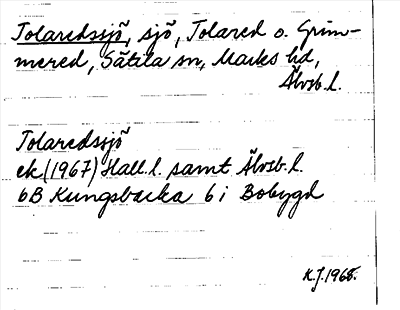 Tolaredssjö, sjö, Tolared o. Grim-
mered, Sätila sn, Marks hd,
Älvsb. l.
Tolaredssjö
ek (1967) Hall. l. samt Älvsb. l.
6B Kungsbacka 6 i Bobygd
K.J. 1968.